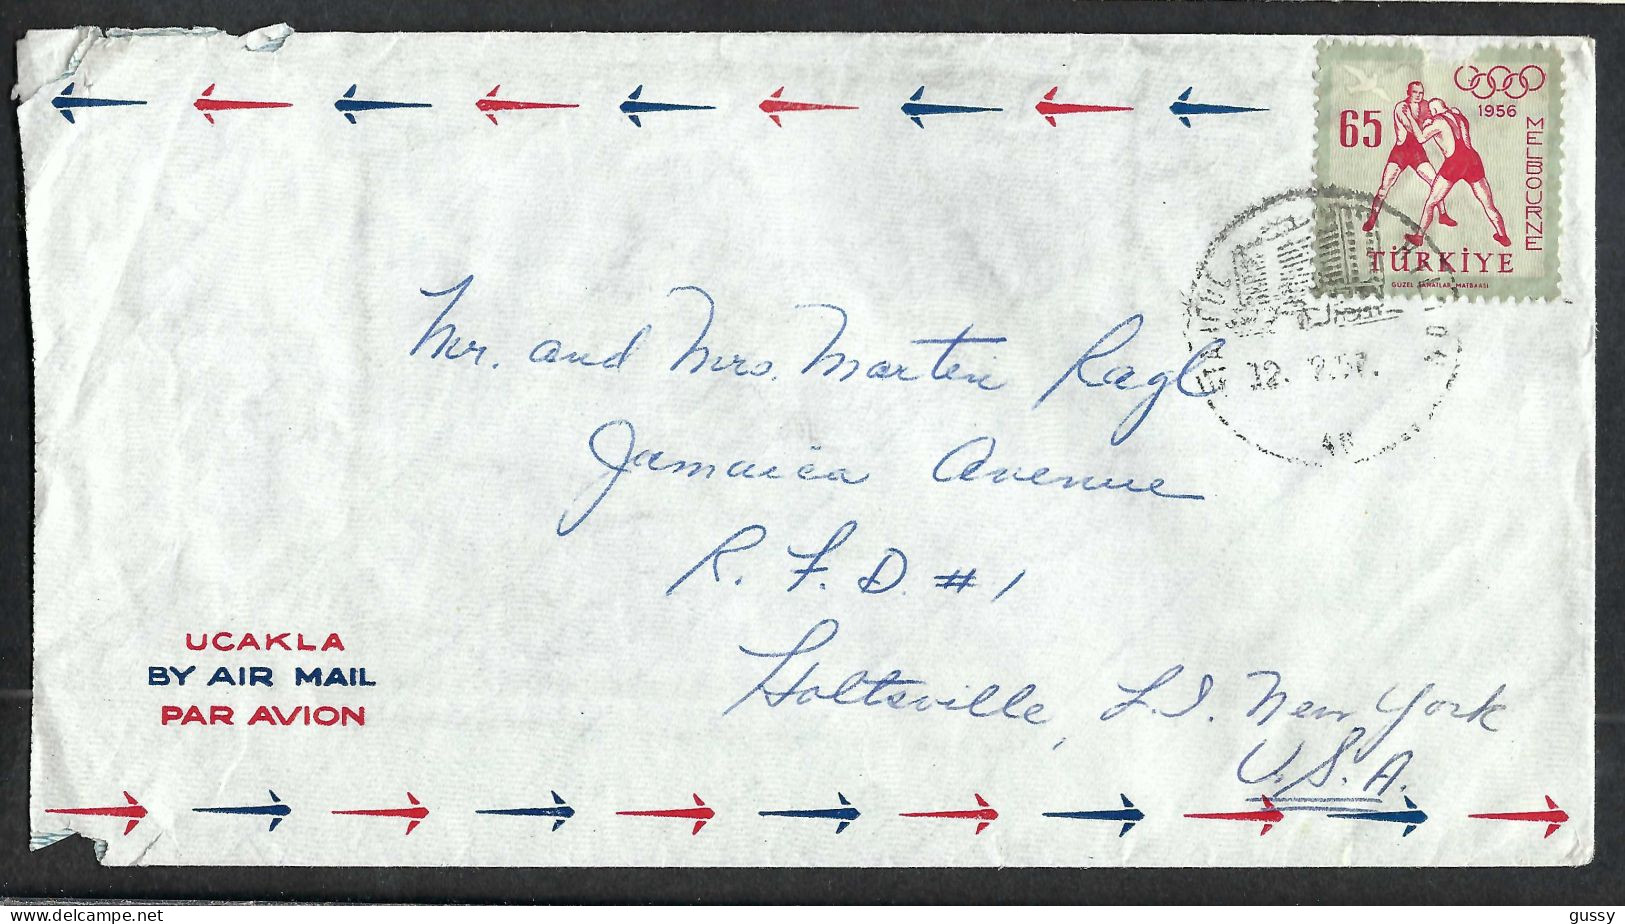 1956
65
MELBOURNE
TÜRKİYE
GÜZEL SANATLAR MATBAASI
12.
Mr. and Mrs. Martin Ragl
Jamaica Avenue
R. F. D. #1
Holtsville, L.I. New York
U.S.A.
UCAKLA
BY AIR MAIL
PAR AVION
gussy